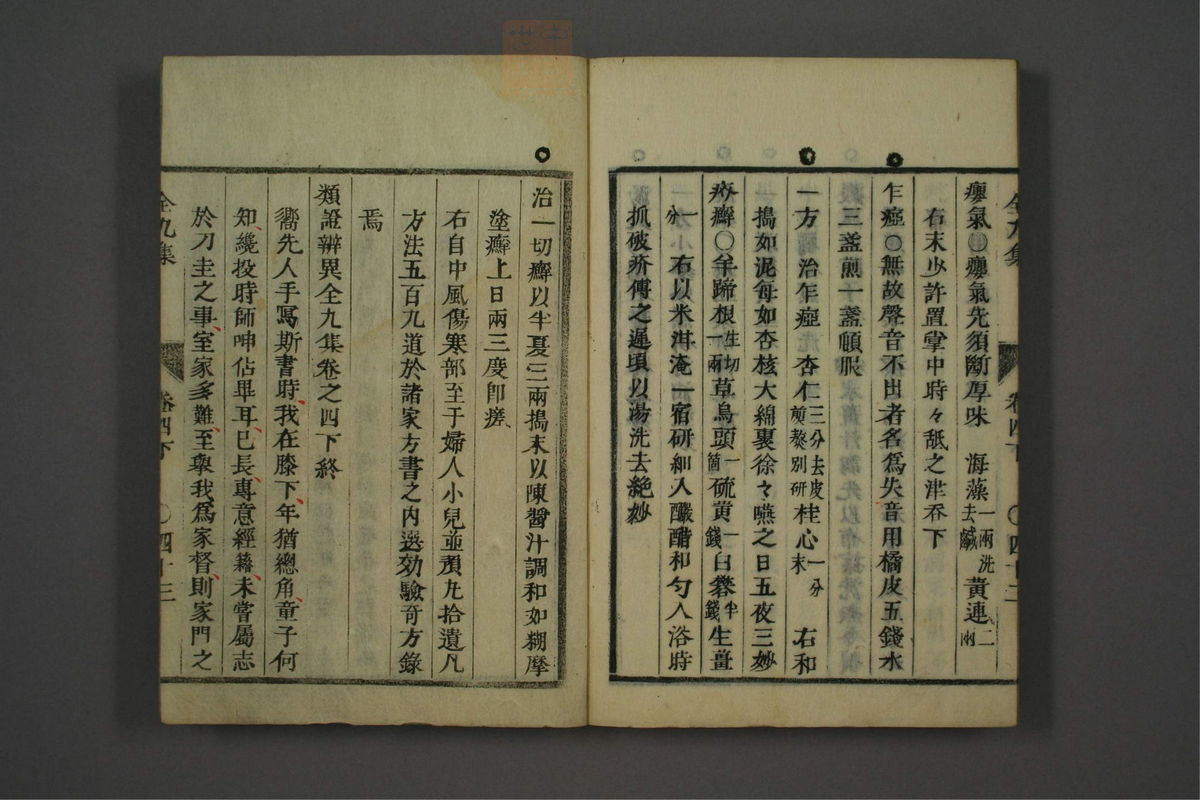 癭氣〇癭氣先須斷厚味 海藻一兩洗去鹹黃連二兩
右末少許置掌中時々舐之津吞下
乍瘂〇無故聲音不出者名為失音用橘皮五錢水
三盞煎一盞頓服
一方治乍瘂 杏仁三分去皮煎熬別研桂心一分末 右和
搗如泥每如杏核大綿裹徐々嚥之日五夜三妙
疥癬〇羊蹄根生切一兩草烏頭一箇硫黃一錢白礬半錢生薑
一分 右以米泔淹一宿研細入釅醋和勻入浴時
抓破疥傅之遲頃以湯洗去絕妙
全九集 卷四下 〇四十三
治一切癬以半夏三兩搗末以陳醬汁調和如糊摩
塗癬上日兩三度即瘥
右自中風傷寒部至于婦人小兒並預九拾遺凡
方法五百九道於諸家方書之內選効驗奇方錄
焉
類證辨異全九集卷之四下終
嚮先人手寫斯書時我在膝下年猶總角童子何
知纔投時師呻佔畢耳已長專意經籍未嘗屬志
於刀圭之事室家多難至舉我為家督則家門之
全九集